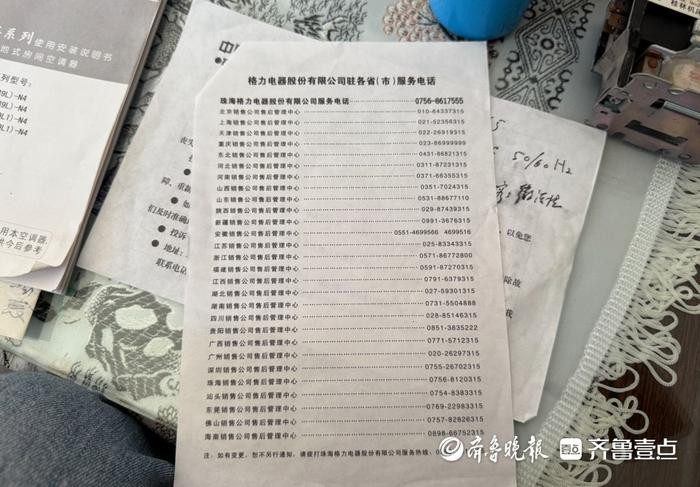 系列
使用安装说明书
地式房间空调器
系列型号:
9L)-N4
L1)-N4
L1)-N4
用本空调器
供今后参考
格力电器股份有限公司驻各省(市)服务电话
珠海格力电器股份有限公司服务电话 0756-8617555
北京销售公司售后管理中心 010-64337315
上海销售公司售后管理中心 021-52356315
天津销售公司售后管理中心 022-26919315
重庆销售公司售后管理中心 023-86999999
东北销售公司售后管理中心 0431-86821315
河北销售公司售后管理中心 0311-87231315
河南销售公司售后管理中心 0371-66355315
山西销售公司售后管理中心 0351-7024315
山东销售公司售后管理中心 0531-88677110
陕西销售公司售后管理中心 029-87439315
新疆销售公司售后管理中心 0991-3676315
安徽销售公司售后管理中心 0551-4699566 4699516
江苏销售公司售后管理中心 025-83343315
浙江销售公司售后管理中心 0571-86772800
福建销售公司售后管理中心 0591-87270315
江西销售公司售后管理中心 0791-6379315
湖北销售公司售后管理中心 027-59301315
湖南销售公司售后管理中心 0731-5504888
四川销售公司售后管理中心 028-85146315
贵阳销售公司售后管理中心 0851-3835222
广西销售公司售后管理中心 0771-5712315
广州销售公司售后管理中心 020-26297315
深圳销售公司售后管理中心 0755-26702315
珠海销售公司售后管理中心 0756-8120315
汕头销售公司售后管理中心 0754-8383315
东莞销售公司售后管理中心 0769-22983315
佛山销售公司售后管理中心 0757-82826315
海南销售公司售后管理中心 0898-66752315
注:如有变更,恕不另行通知,请拨打珠海格力电器股份有限公司服务热线
50/60Hz
以免您
除故
我
联系电话
投诉
地址:
们及时准确
障、重新
桂林机
齐鲁晚报
齐鲁壹点